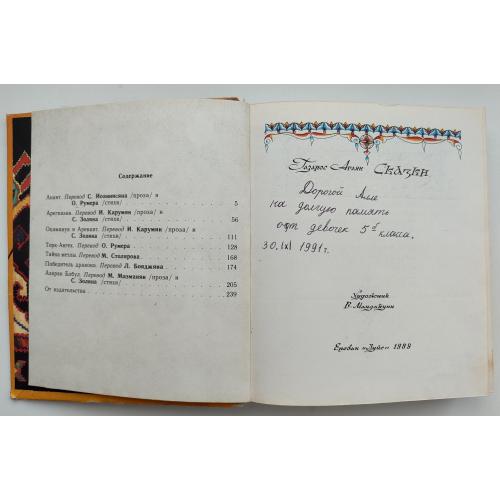 Содержание
Анаит. Перевод С. Иоаннисяна /проза/ и
О. Румера /стихи/ 5
Арегназан. Перевод И. Карумян /проза/ и
С. Золяна /стихи/ 56
Оцаманук и Аревахат. Перевод И. Карумян /проза/ и
С. Золяна /стихи/ 111
Торк-Ангех. Перевод О. Румера 128
Тайна ветлы. Перевод М. Столярова 168
Победитель дракона. Перевод Л. Бонджяна 174
Азаран Бабул. Перевод М. Мазманян /проза/ и
С. Золяна /стихи/ 205
От издательства 239
Газарос Агаян Сказки
Дорогой Алле
на долгую память
от девочек 5 класса.
30.IX 1991 г.
Художник
В. Мандакуни
Ереван «Луйс» 1989